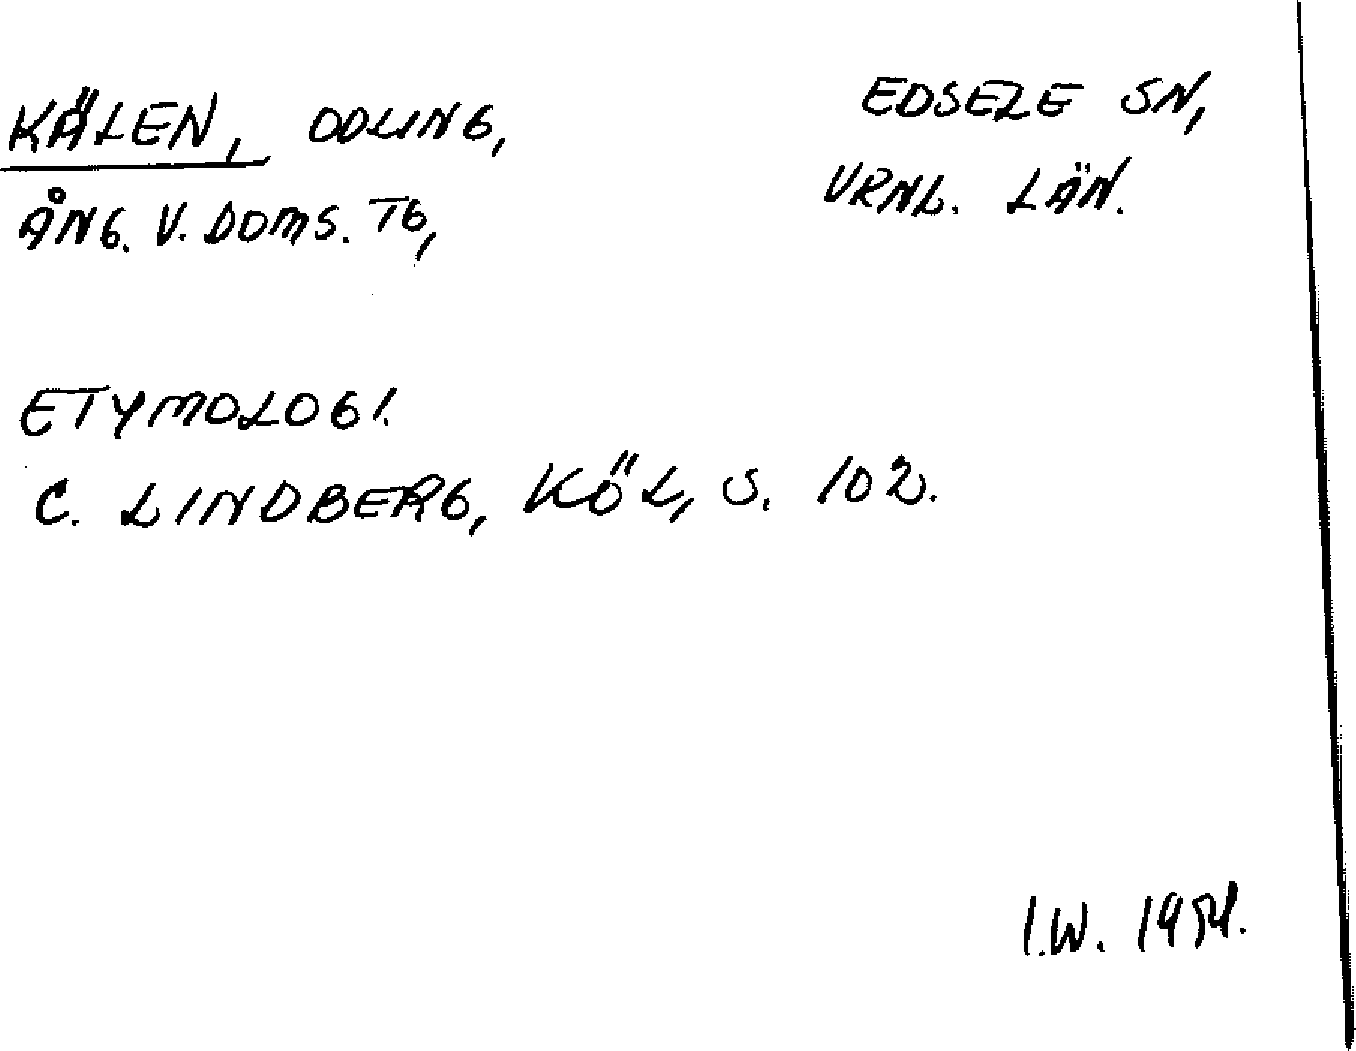 KÄLEN, ODLING,
ÅNG. V. DOMS. TG,
EDSELE SN,
VRNL. LÄN.
ETYMOLOGI.
C. LINDBERG, KÖL, S. 102.
I.W. 1954.